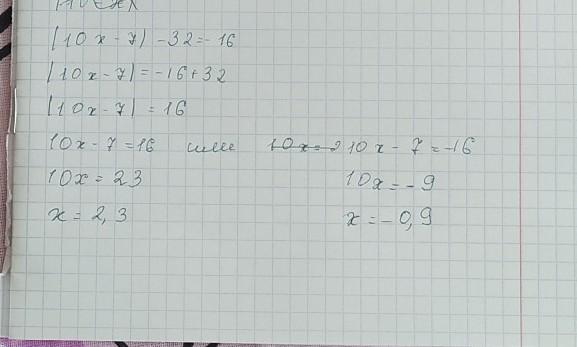 |10x - 7| - 32 = -16
|10x - 7| = -16 + 32
|10x - 7| = 16
10x - 7 = 16 или 10x - 7 = -16
10x = 23 10x = -9
x = 2,3 x = -0,9